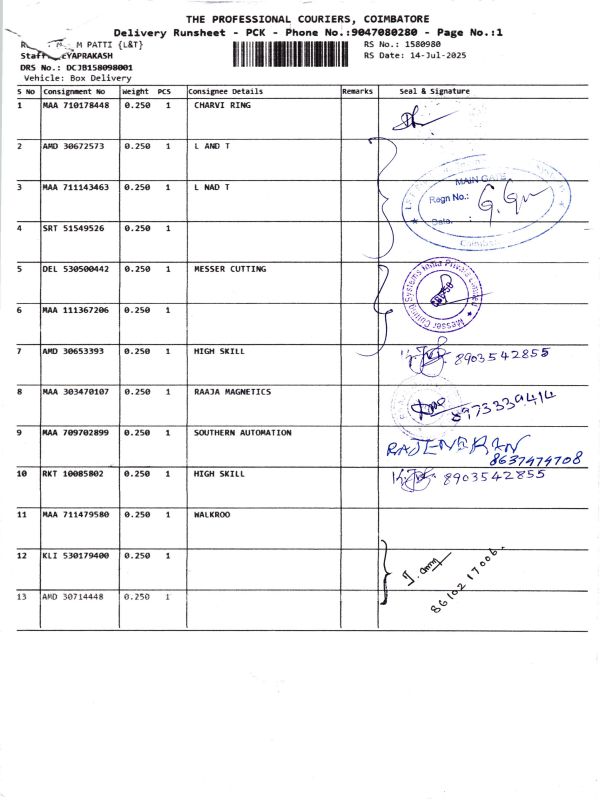 THE PROFESSIONAL COURIERS, COIMBATORE
Delivery Runsheet - PCK - Phone No.:9047080280 - Page No.:1
M PATTI {L&T}
RS No.: 1580980
Staff EYAPRAKASH
RS Date: 14-Jul-2025
DRS No.: DCJB158098001
Vehicle: Box Delivery
S No Consignment No Weight PCS Consignee Details Remarks Seal & Signature
1 MAA 710178448 0.250 1 CHARVI RING
2 AMD 30672573 0.250 1 L AND T
3 MAA 711143463 0.250 1 L NAD T
MAIN GATE
Regn No.:
Date. :
4 SRT 51549526 0.250 1
5 DEL 530500442 0.250 1 MESSER CUTTING
Messer Cutting Systems India Private Limited
6 MAA 111367206 0.250 1
7 AMD 30653393 0.250 1 HIGH SKILL 8903542855
8 MAA 303470107 0.250 1 RAAJA MAGNETICS 8973339414
9 MAA 709702899 0.250 1 SOUTHERN AUTOMATION RAJENDRAN
8637474708
10 RKT 10085802 0.250 1 HIGH SKILL 8903542855
11 MAA 711479580 0.250 1 WALKROO
12 KLI 530179400 0.250 1
13 AMD 30714448 0.250 1
8610217006